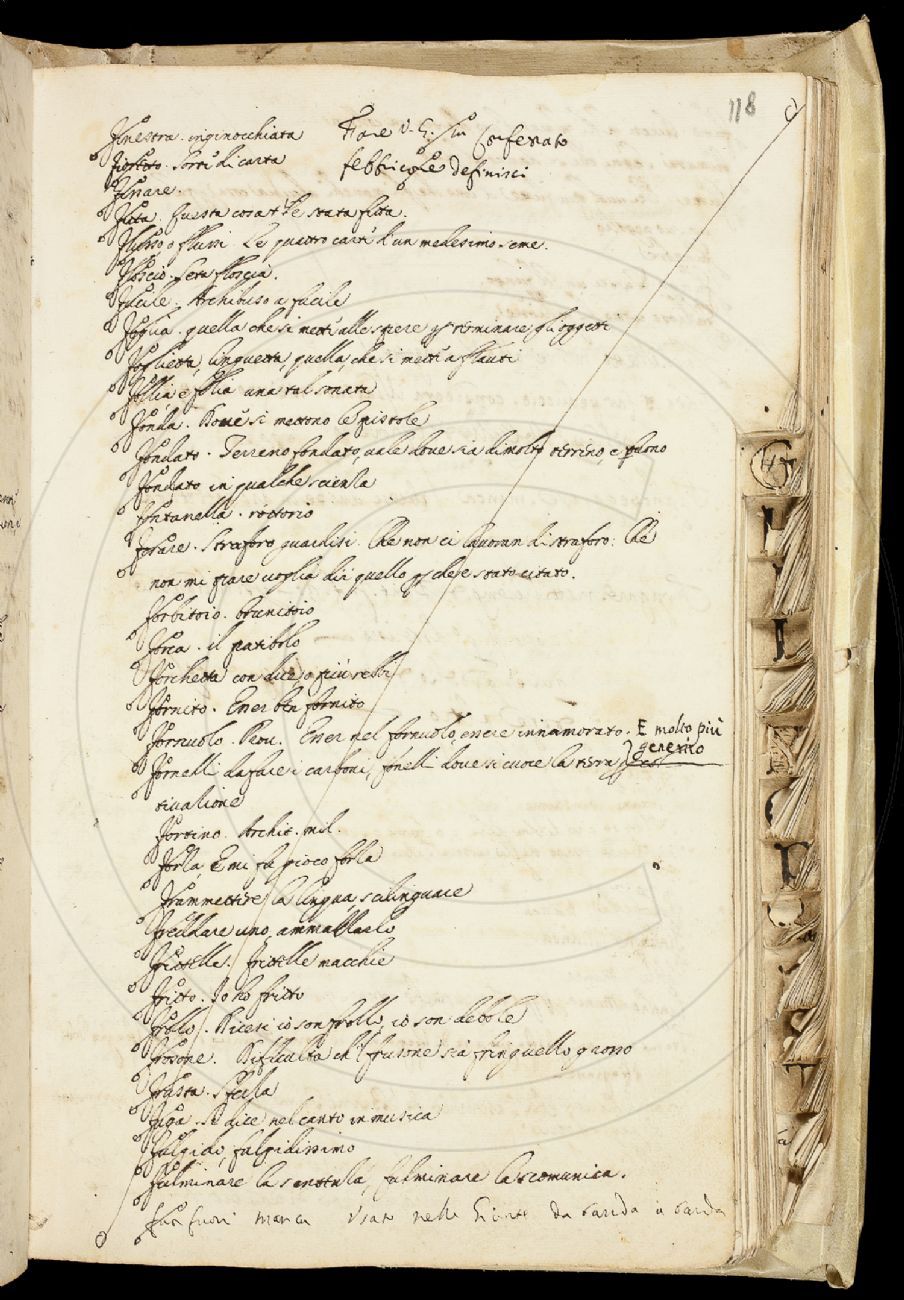 118
Finestra. inginocchiata
Fioretto. Sorte di carta
Fiare V. G. sin Confessato
febbricone definisci
Fissare.
Fitta. Questa cosa t'è stata fitta.
Flusso o flussi. Le quattro carte d'un medesimo seme.
Floscio. Seta floscia.
Focile. Archibuso a focile
Foglia. quella che si mette alle spere per terminare gli oggetti
Foglietta, linguetta, quella, che si mette a flauti
Follia, e folia una tal sonata
Fonda. Dove si mettono le pistole
Fondato. Terreno fondato, vale dove sia di molto terreno, e buono
Fondato in qualche scienza
Fontanella. rottorio
Forare. Straforo guardisi. Che non ci lavoran di straforo: Che
non mi pare voglia dir quello per che è stato citato.
Forbitoio. brunitoio
Forca. il patibolo
Forchetta con due, o più rebbi
Fornito. Esser ben fornito
Fornuolo. Prov. Esser nel fornuolo, essere innamorato. E molto più
generico
Fornelli da fare i carboni, fornelli dove si cuoce la terra
tivazione
Fortino. Archit. mil.
Forza, E mi fu gioco forza
Frammettere la lingua, scilinguare
Freddare uno, ammazzarlo
Frittelle. frittelle macchie
Fritto. Io ho fritto
Frollo. Dicesi io son frollo, io son debole
Frosone. Difficulta ch'l frusone sia fringuello grosso
Frusta. Sferza
Fuga. Si dice nel canto in musica
Fulgido, fulgidissimo
Fulminare la sentenza, fulminare la scomunica.
Fuor fuori manca Usato nelle Giunte da banda a banda
G